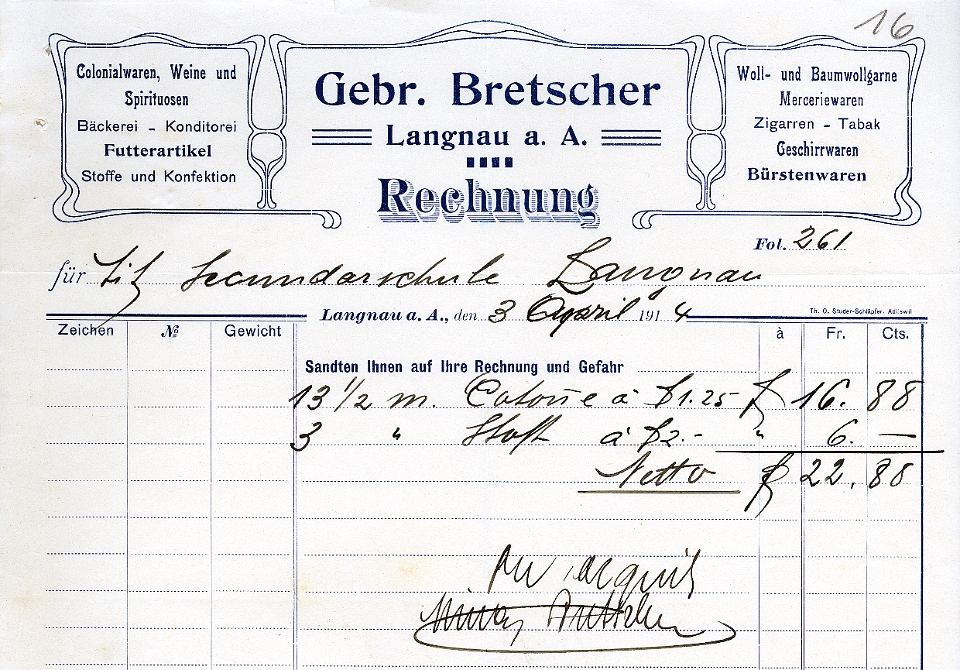 16
Colonialwaren, Weine und
Spirituosen
Bäckerei - Konditorei
Futterartikel
Stoffe und Konfektion
Gebr. Bretscher
Langnau a. A.
Rechnung
Woll- und Baumwollgarne
Merceriewaren
Zigarren - Tabak
Geschirrwaren
Bürstenwaren
Fol. 261
für Tit. Secundarschule Langnau
Langnau a. A., den 3 April 1914
Th. O. Studer-Schläpfer, Adliswil
Zeichen № Gewicht à Fr. Cts.
Sandten Ihnen auf Ihre Rechnung und Gefahr
13 1/2 m. à 1.25 16. 88
3 " Stoff à 2.- " 6. —
Netto 22. 88
acquit
Bretscher